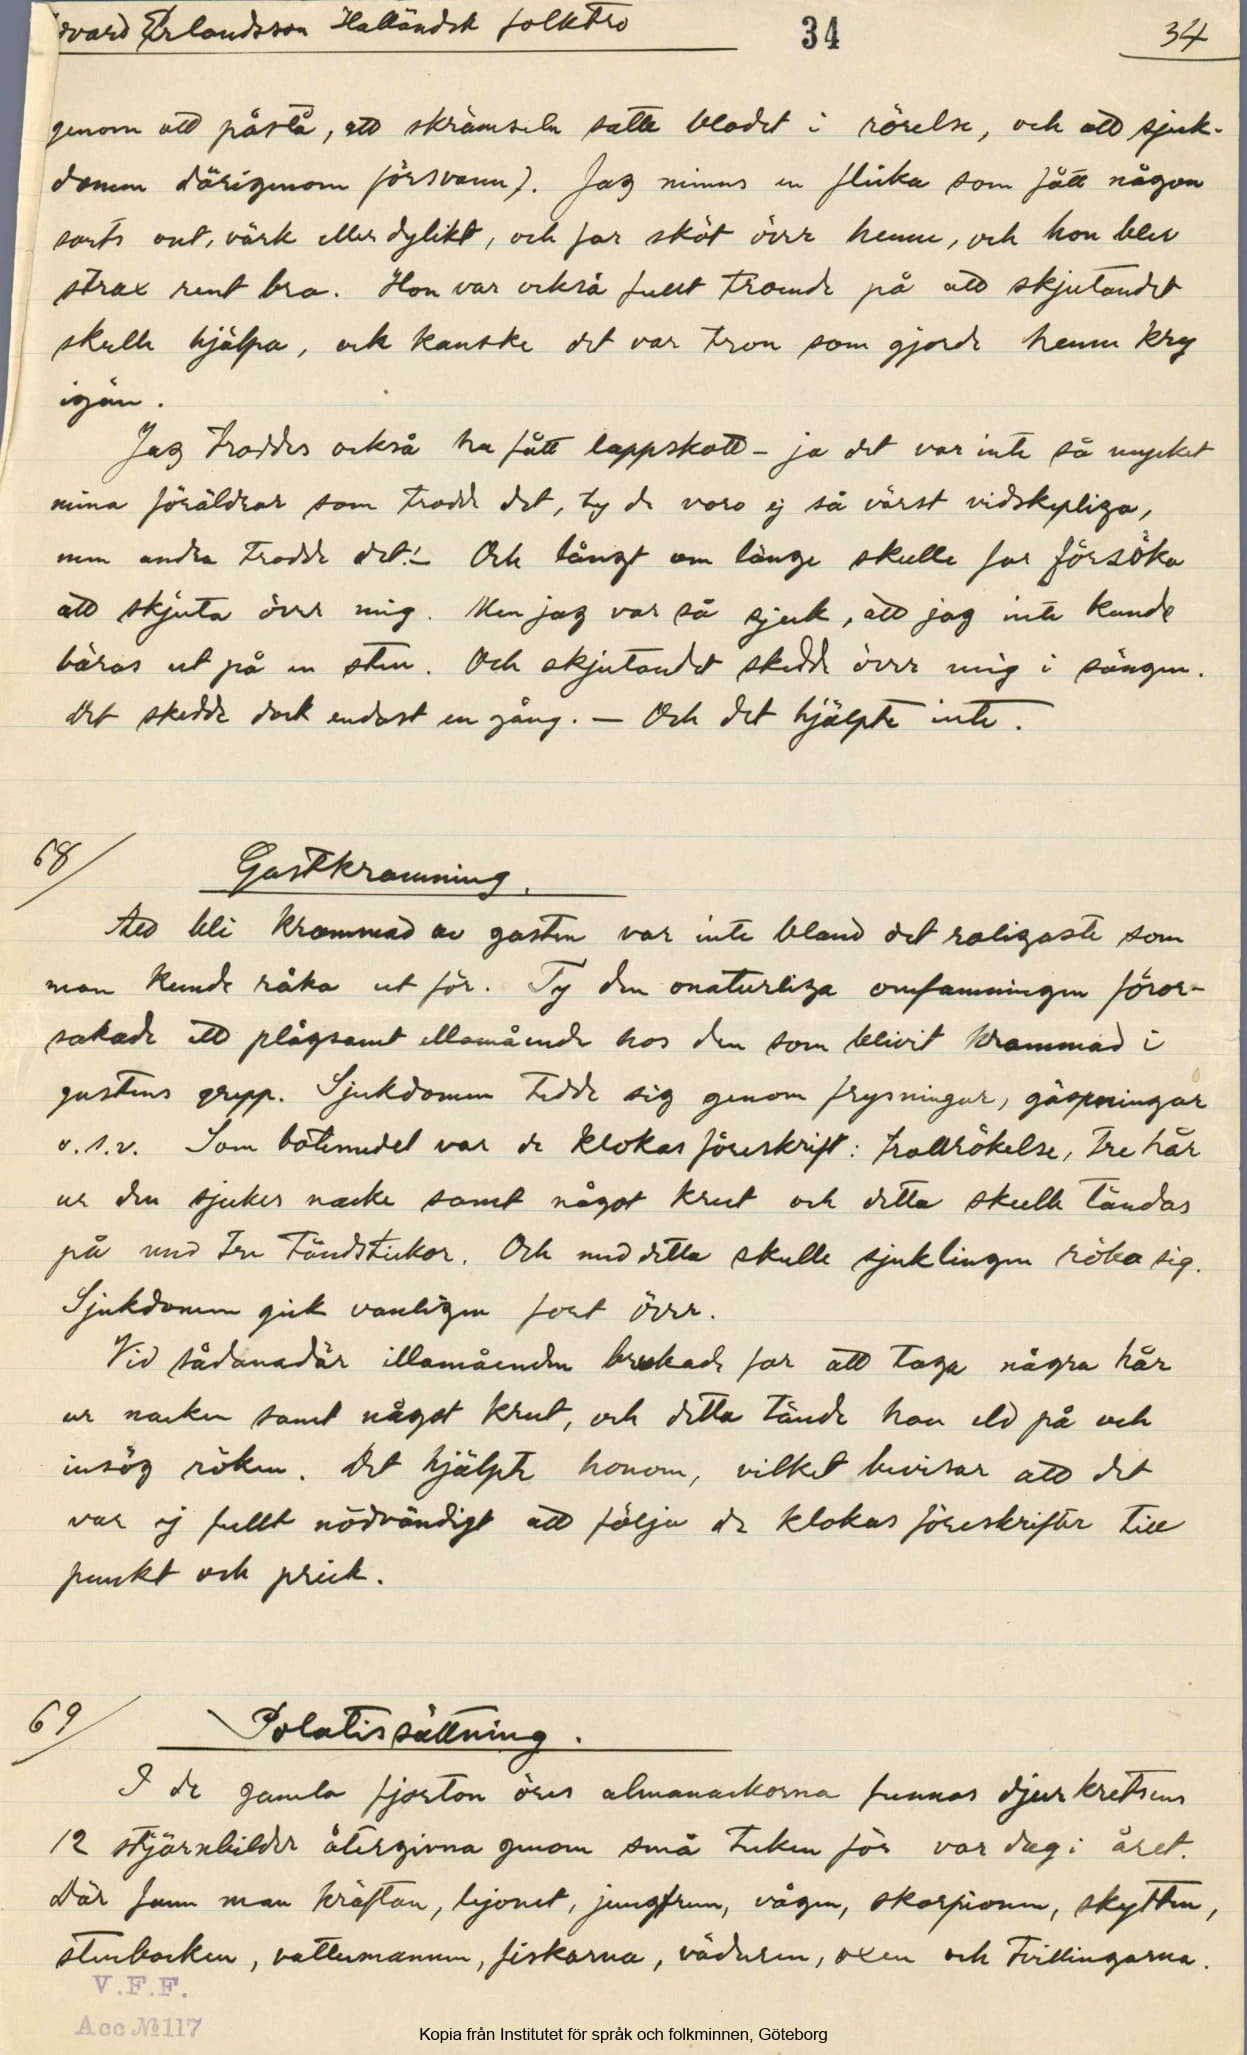 dvard Erlandsson Halländsk folktro 34 34
genom att påstå, att skrämseln satte blodet i rörelse, och att sjuk-
domen därigenom försvann). Jag minns en flicka som fått någon
sorts ont, värk eller dylikt, och far sköt över henne, och hon blev
strax rent bra. Hon var också fullt troende på att skjutandet
skulle hjälpa, och kanske det var tron som gjorde henne kry
igän.
Jag troddes också ha fått lappskott – ja det var inte så mycket
mina föräldrar som trodde det, ty de voro ej så värst vidskepliga,
men andra trodde det! – Och långt om länge skulle far försöka
att skjuta över mig. Men jag var så sjuk, att jag inte kunde
bäras ut på en sten. Och skjutandet skedde över mig i sängen.
Det skedde dock endast en gång. – Och det hjälpte inte.
68/ Gastkramning.
Att bli krammad av gasten var inte bland det roligaste som
man kunde råka ut för. Ty den onaturliga omfamningen föror-
sakade ett plågsamt illamående hos den som blivit krammad i
gastens grepp. Sjukdomen tedde sig genom frysningar, gäspningar
o.s.v. Som botemedel var de klokas föreskrift: trollrökelse, tre hår
ur den sjukes nacke samt något krut och detta skulle tändas
på med tre tändstickor. Och med detta skulle sjuklingen röka sig.
Sjukdomen gick vanligen fort över.
Vid sådanadär illamåenden brukade far att taga några hår
ur nacken samt något krut, och detta tände han eld på och
insög röken. Det hjälpte honom, vilket bevisar att det
var ej fullt nödvändigt att följa de klokas föreskrifter till
punkt och prick.
69/ Polatissättning.
I de gamla fjorton öres almanackorna funnos djurkretsens
12 stjärnbilder återgivna genom små tecken för var dag i året.
Där fann man kräftan, lejonet, jungfrun, vågen, skorpionen, skytten,
stenbocken, vattumannen, fiskarna, väduren, oxen och tvillingarna.
V.F.F.
Acc № 117
Kopia från Institutet för språk och folkminnen, Göteborg